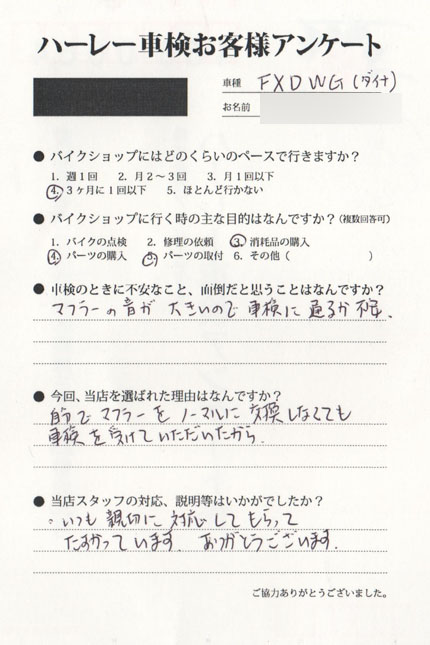 ハーレー車検お客様アンケート
車種 FXDWG(ダイナ)
お名前
● バイクショップにはどのくらいのペースで行きますか?
1. 週1回 2. 月2〜3回 3. 月1回以下
4. 3ヶ月に1回以下 5. ほとんど行かない
● バイクショップに行く時の主な目的はなんですか?(複数回答可)
1. バイクの点検 2. 修理の依頼 3. 消耗品の購入
4. パーツの購入 5. パーツの取付 6. その他( )
● 車検のときに不安なこと、面倒だと思うことはなんですか?
マフラーの音が大きいので車検に通るか不安、
● 今回、当店を選ばれた理由はなんですか?
自分でマフラーをノーマルに交換しなくても
車検を受けていただいたから。
● 当店スタッフの対応、説明等はいかがでしたか?
。いつも親切に対応してもらって
たすかっています。ありがとうございます。
ご協力ありがとうございました。